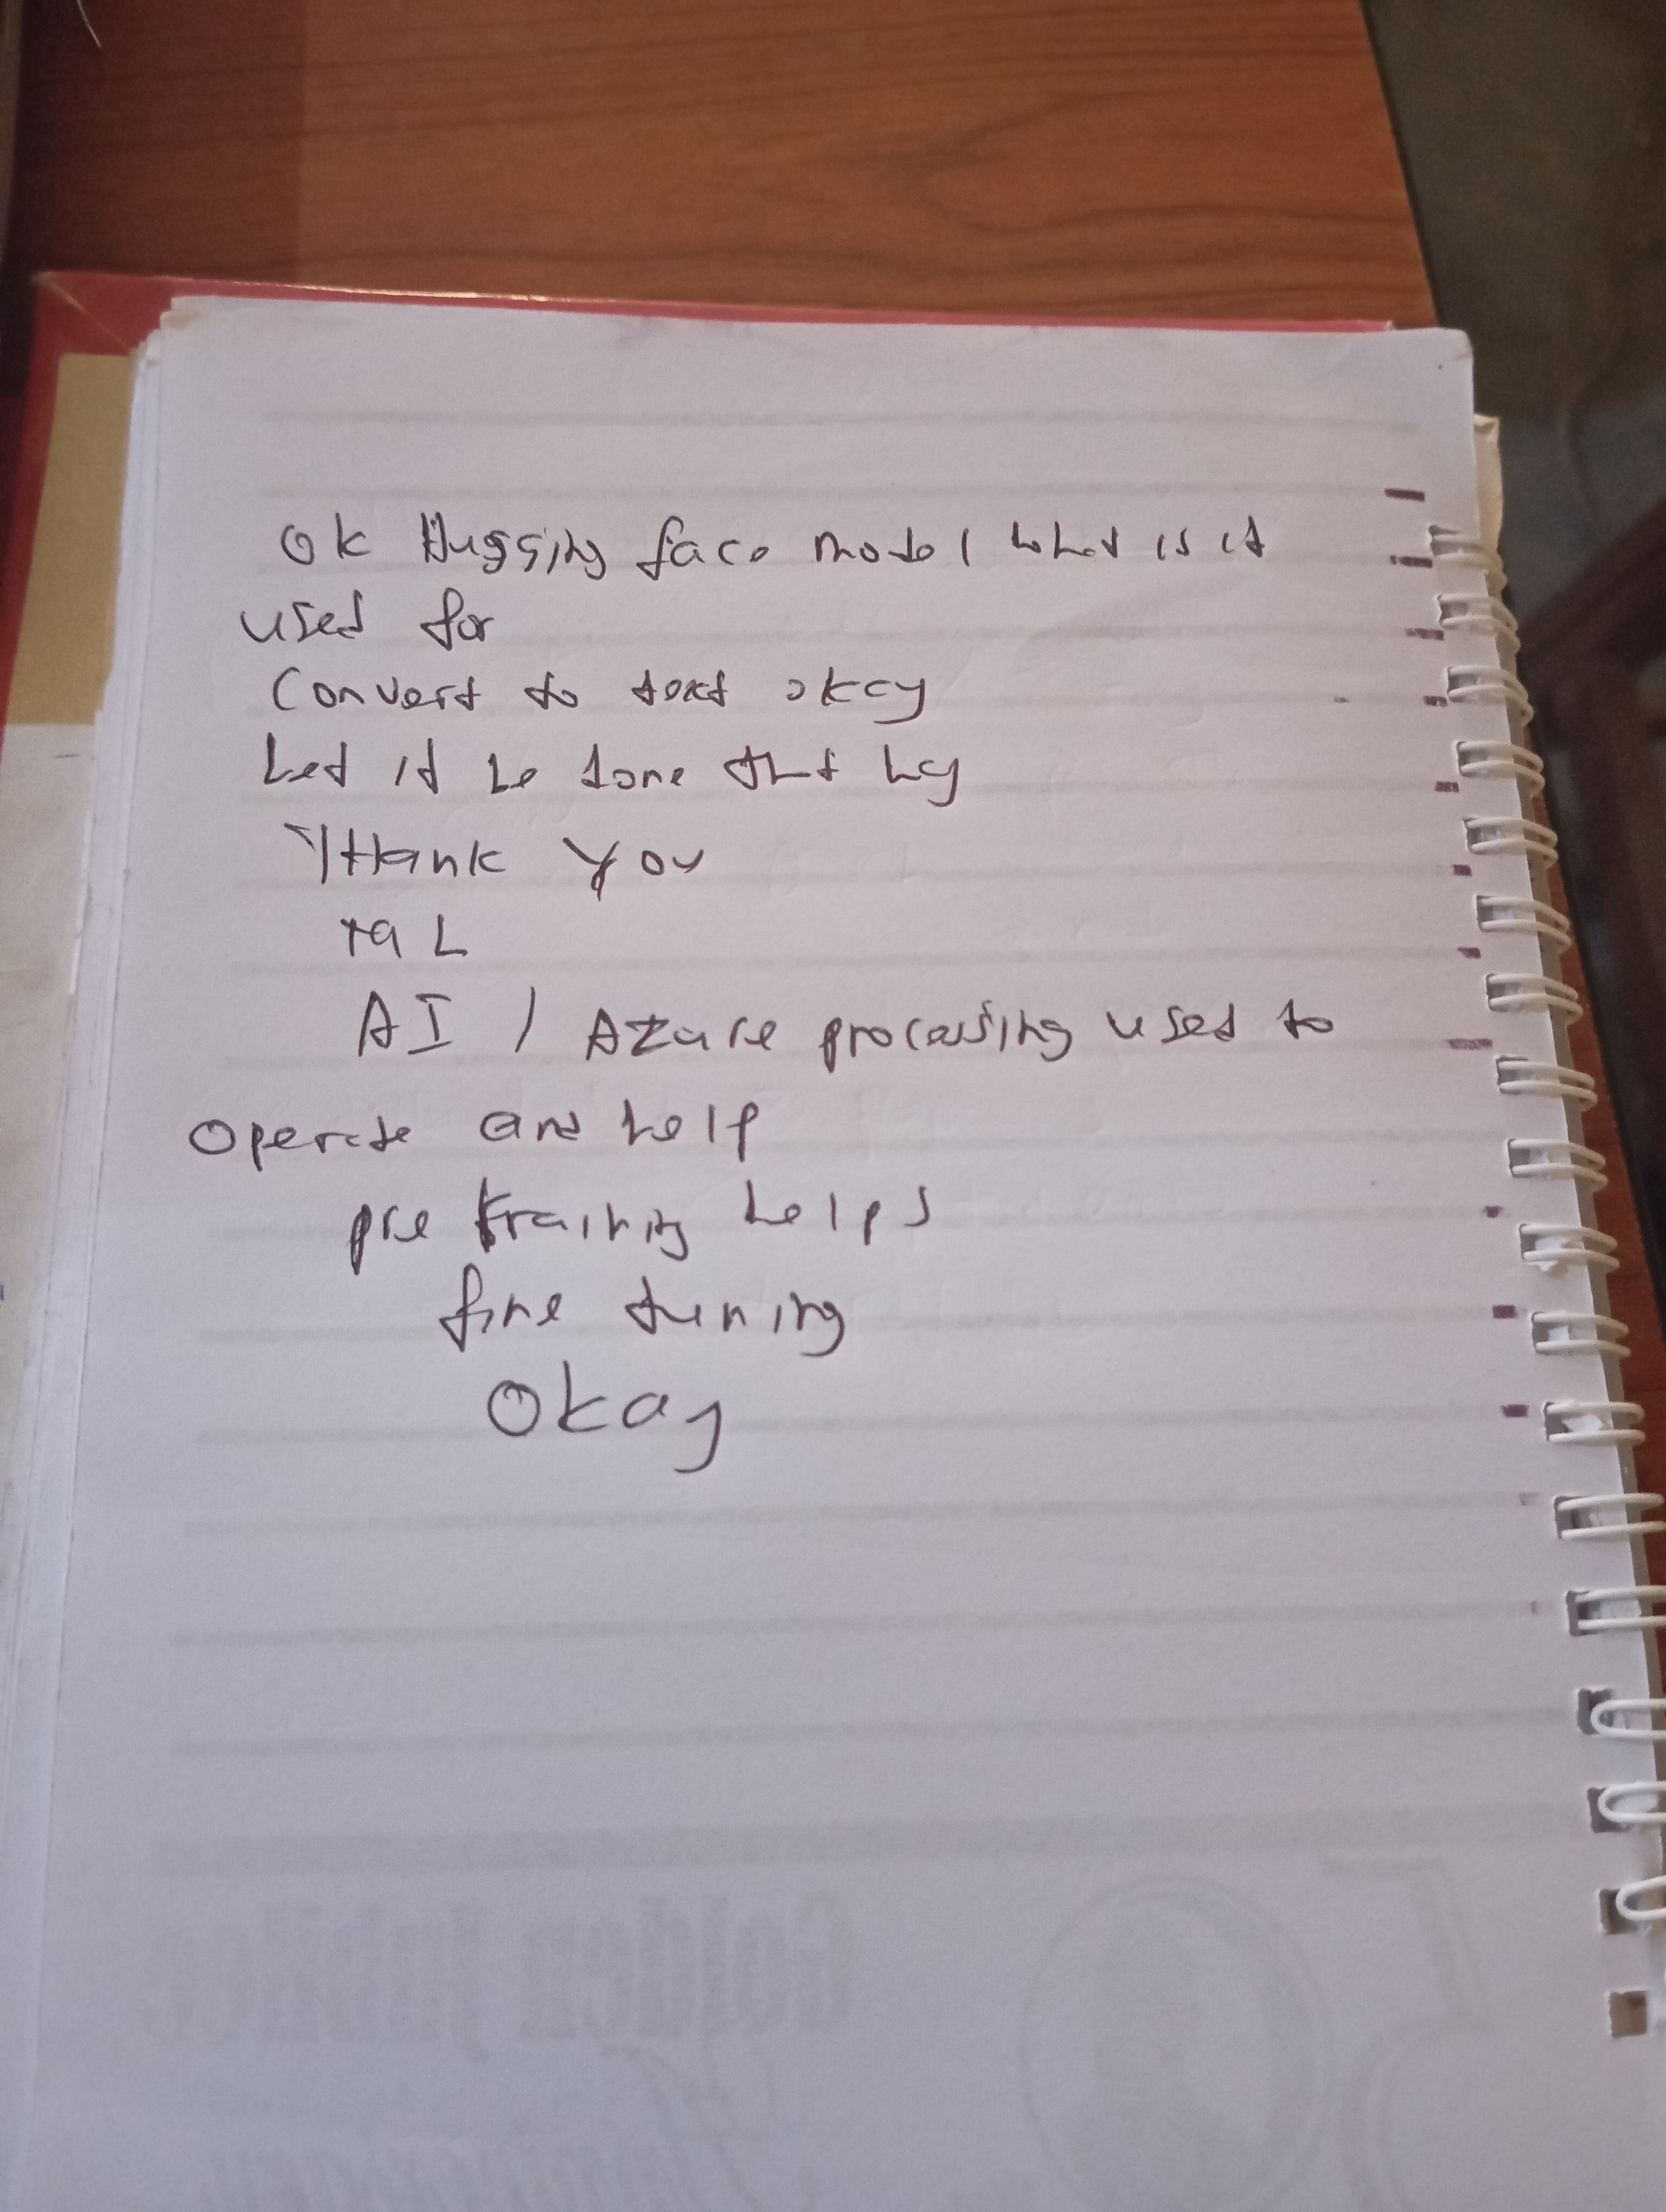 Ok Hugging face model what is it
used for
Convert to text okay
Let it be done that
Thank you
AI / Azure processing used to
operate and help
pre training helps
fine tuning
Okay
Golden Jubilee